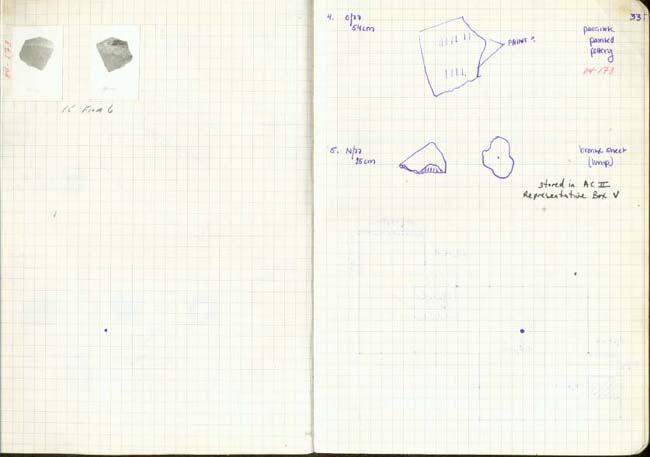 P4-173
16 From 6
33
4. O/22
54cm
PAINT?
possible
painted
pottery
P4-173
5. N/22
25cm
bronze sheet
(lump)
stored in AC II
Representative Box V